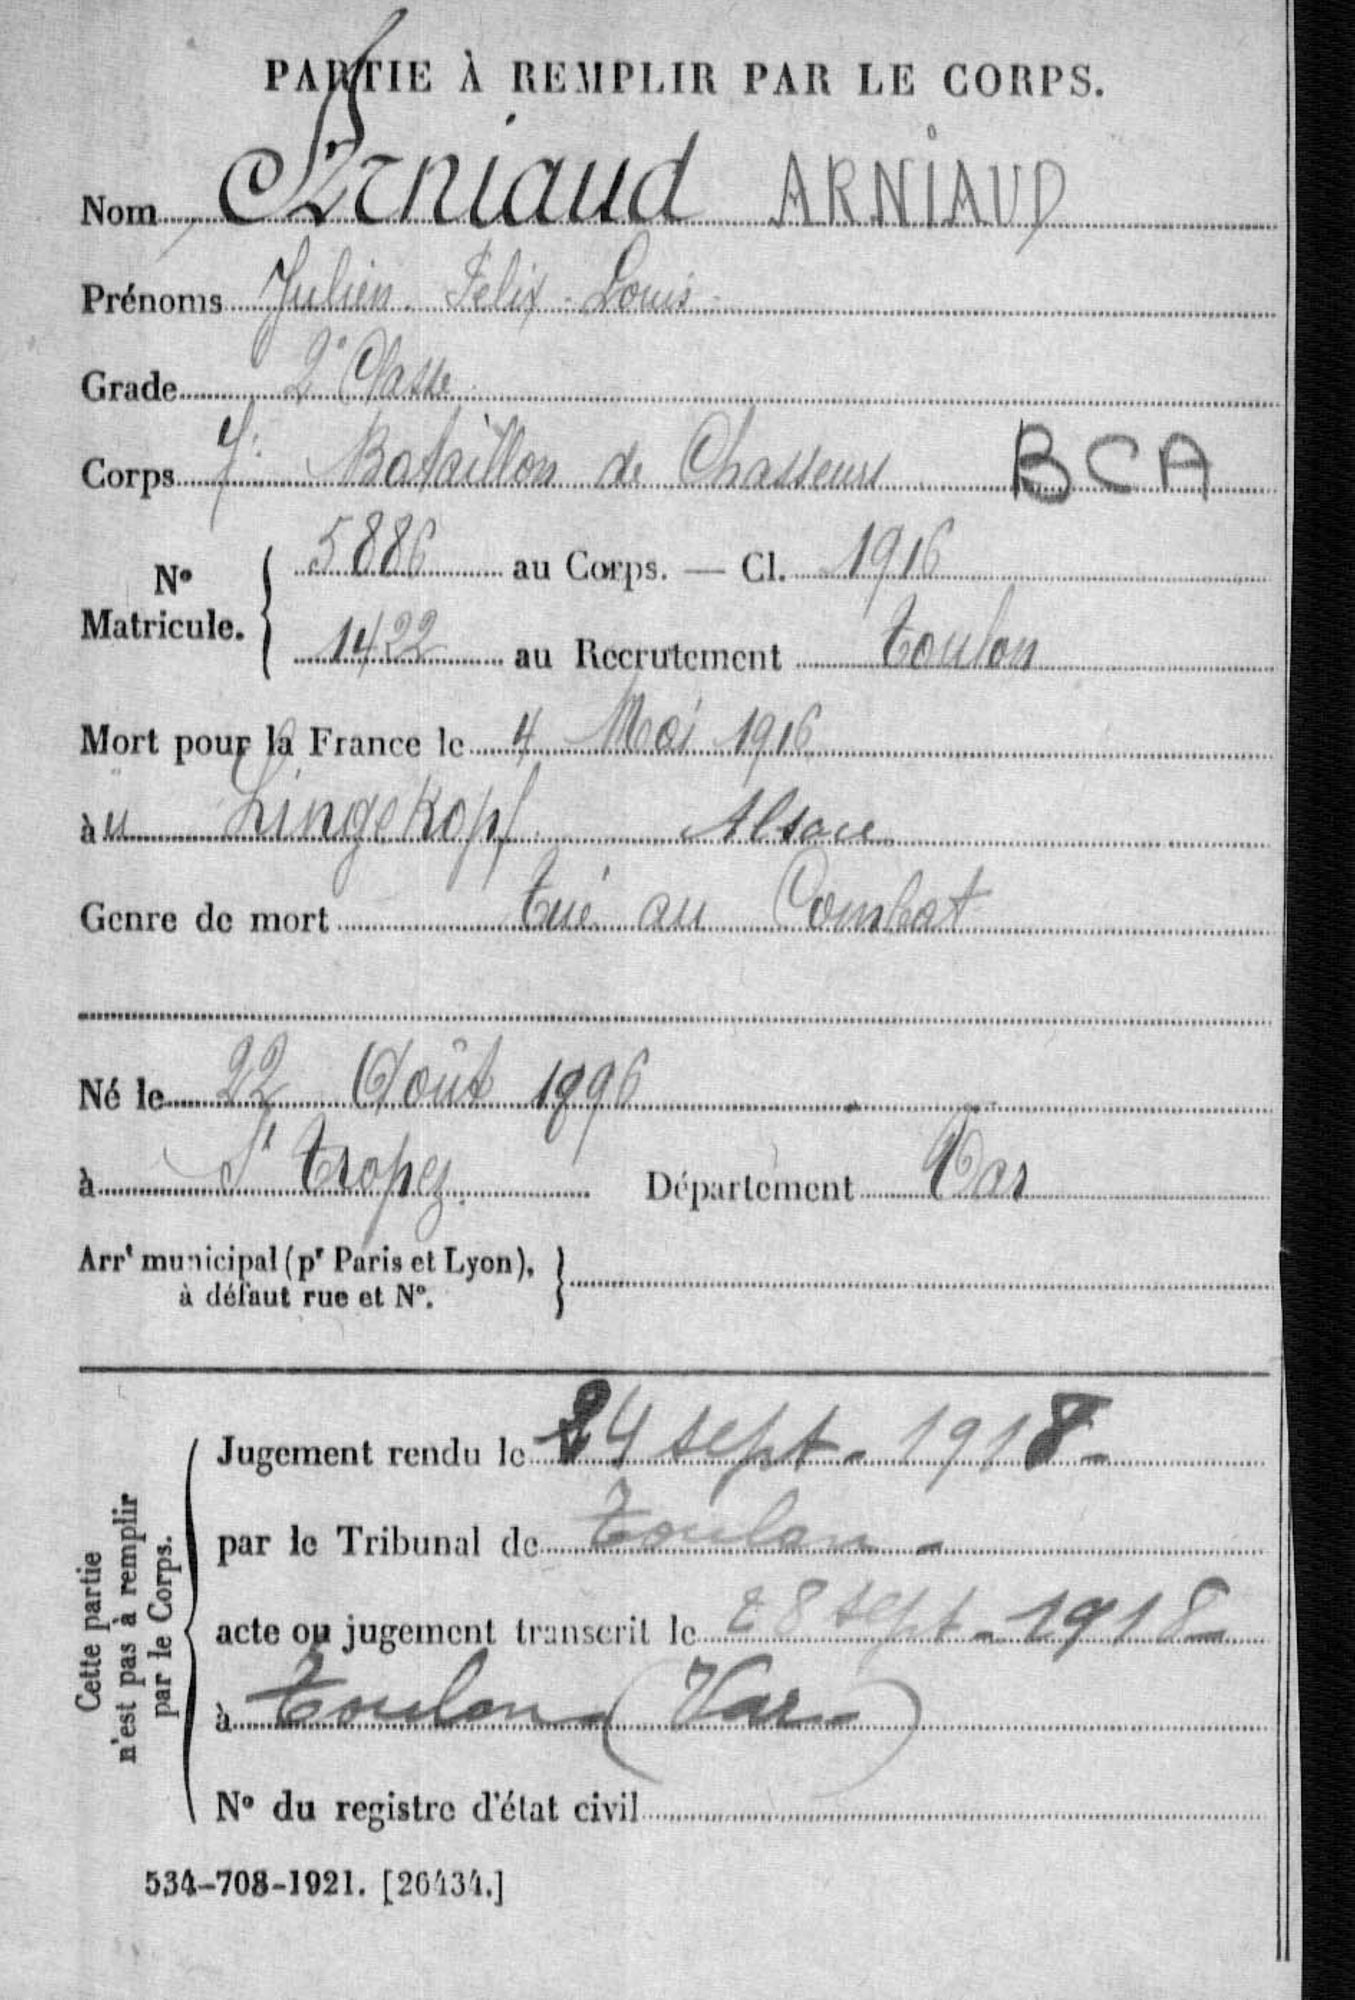 PARTIE À REMPLIR PAR LE CORPS.
Nom Arniaud ARNIAUD
Prénoms Julien. Félix. Louis.
Grade 2e Classe
Corps 7e Bataillon de Chasseurs BCA
No Matricule. { 5886 au Corps. — Cl. 1916
1422 au Recrutement Toulon
Mort pour la France le 4 Mai 1916
àu Lingekopf Alsace
Genre de mort tué au Combat
Né le 22 Août 1896
à St Tropez. Département Var
Arrt municipal (pr Paris et Lyon), }
à défaut rue et No.
Cette partie
n'est pas à remplir
par le Corps.
Jugement rendu le 24 sept - 1918 -
par le Tribunal de Toulon -
acte ou jugement transcrit le 28 sept - 1918 -
à Toulon (Var)
No du registre d'état civil
534-708-1921. [26434.]